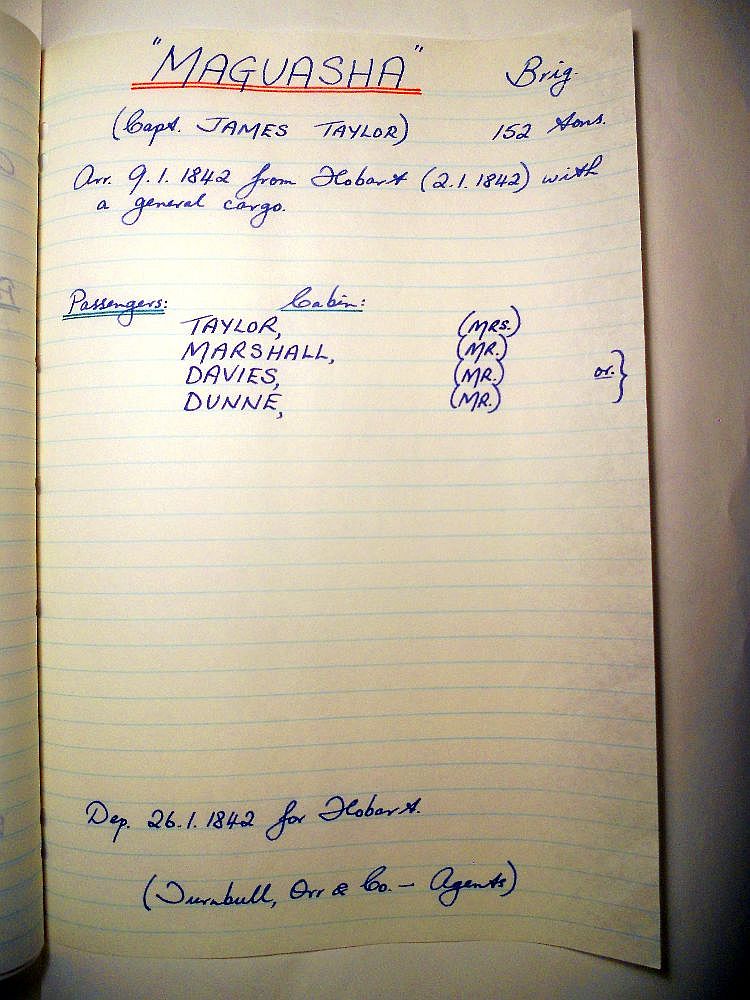 "MAGUASHA" Brig.
(Capt. JAMES TAYLOR) 152 tons.
Arr. 9.1.1842 from Hobart (2.1.1842) with
a general cargo.
Passengers: Cabin:
TAYLOR, (MRS.)
MARSHALL, (MR.)
DAVIES, (MR.) or. }
DUNNE, (MR.)
Dep. 26.1.1842 for Hobart.
(Turnbull, Orr & Co. – Agents)